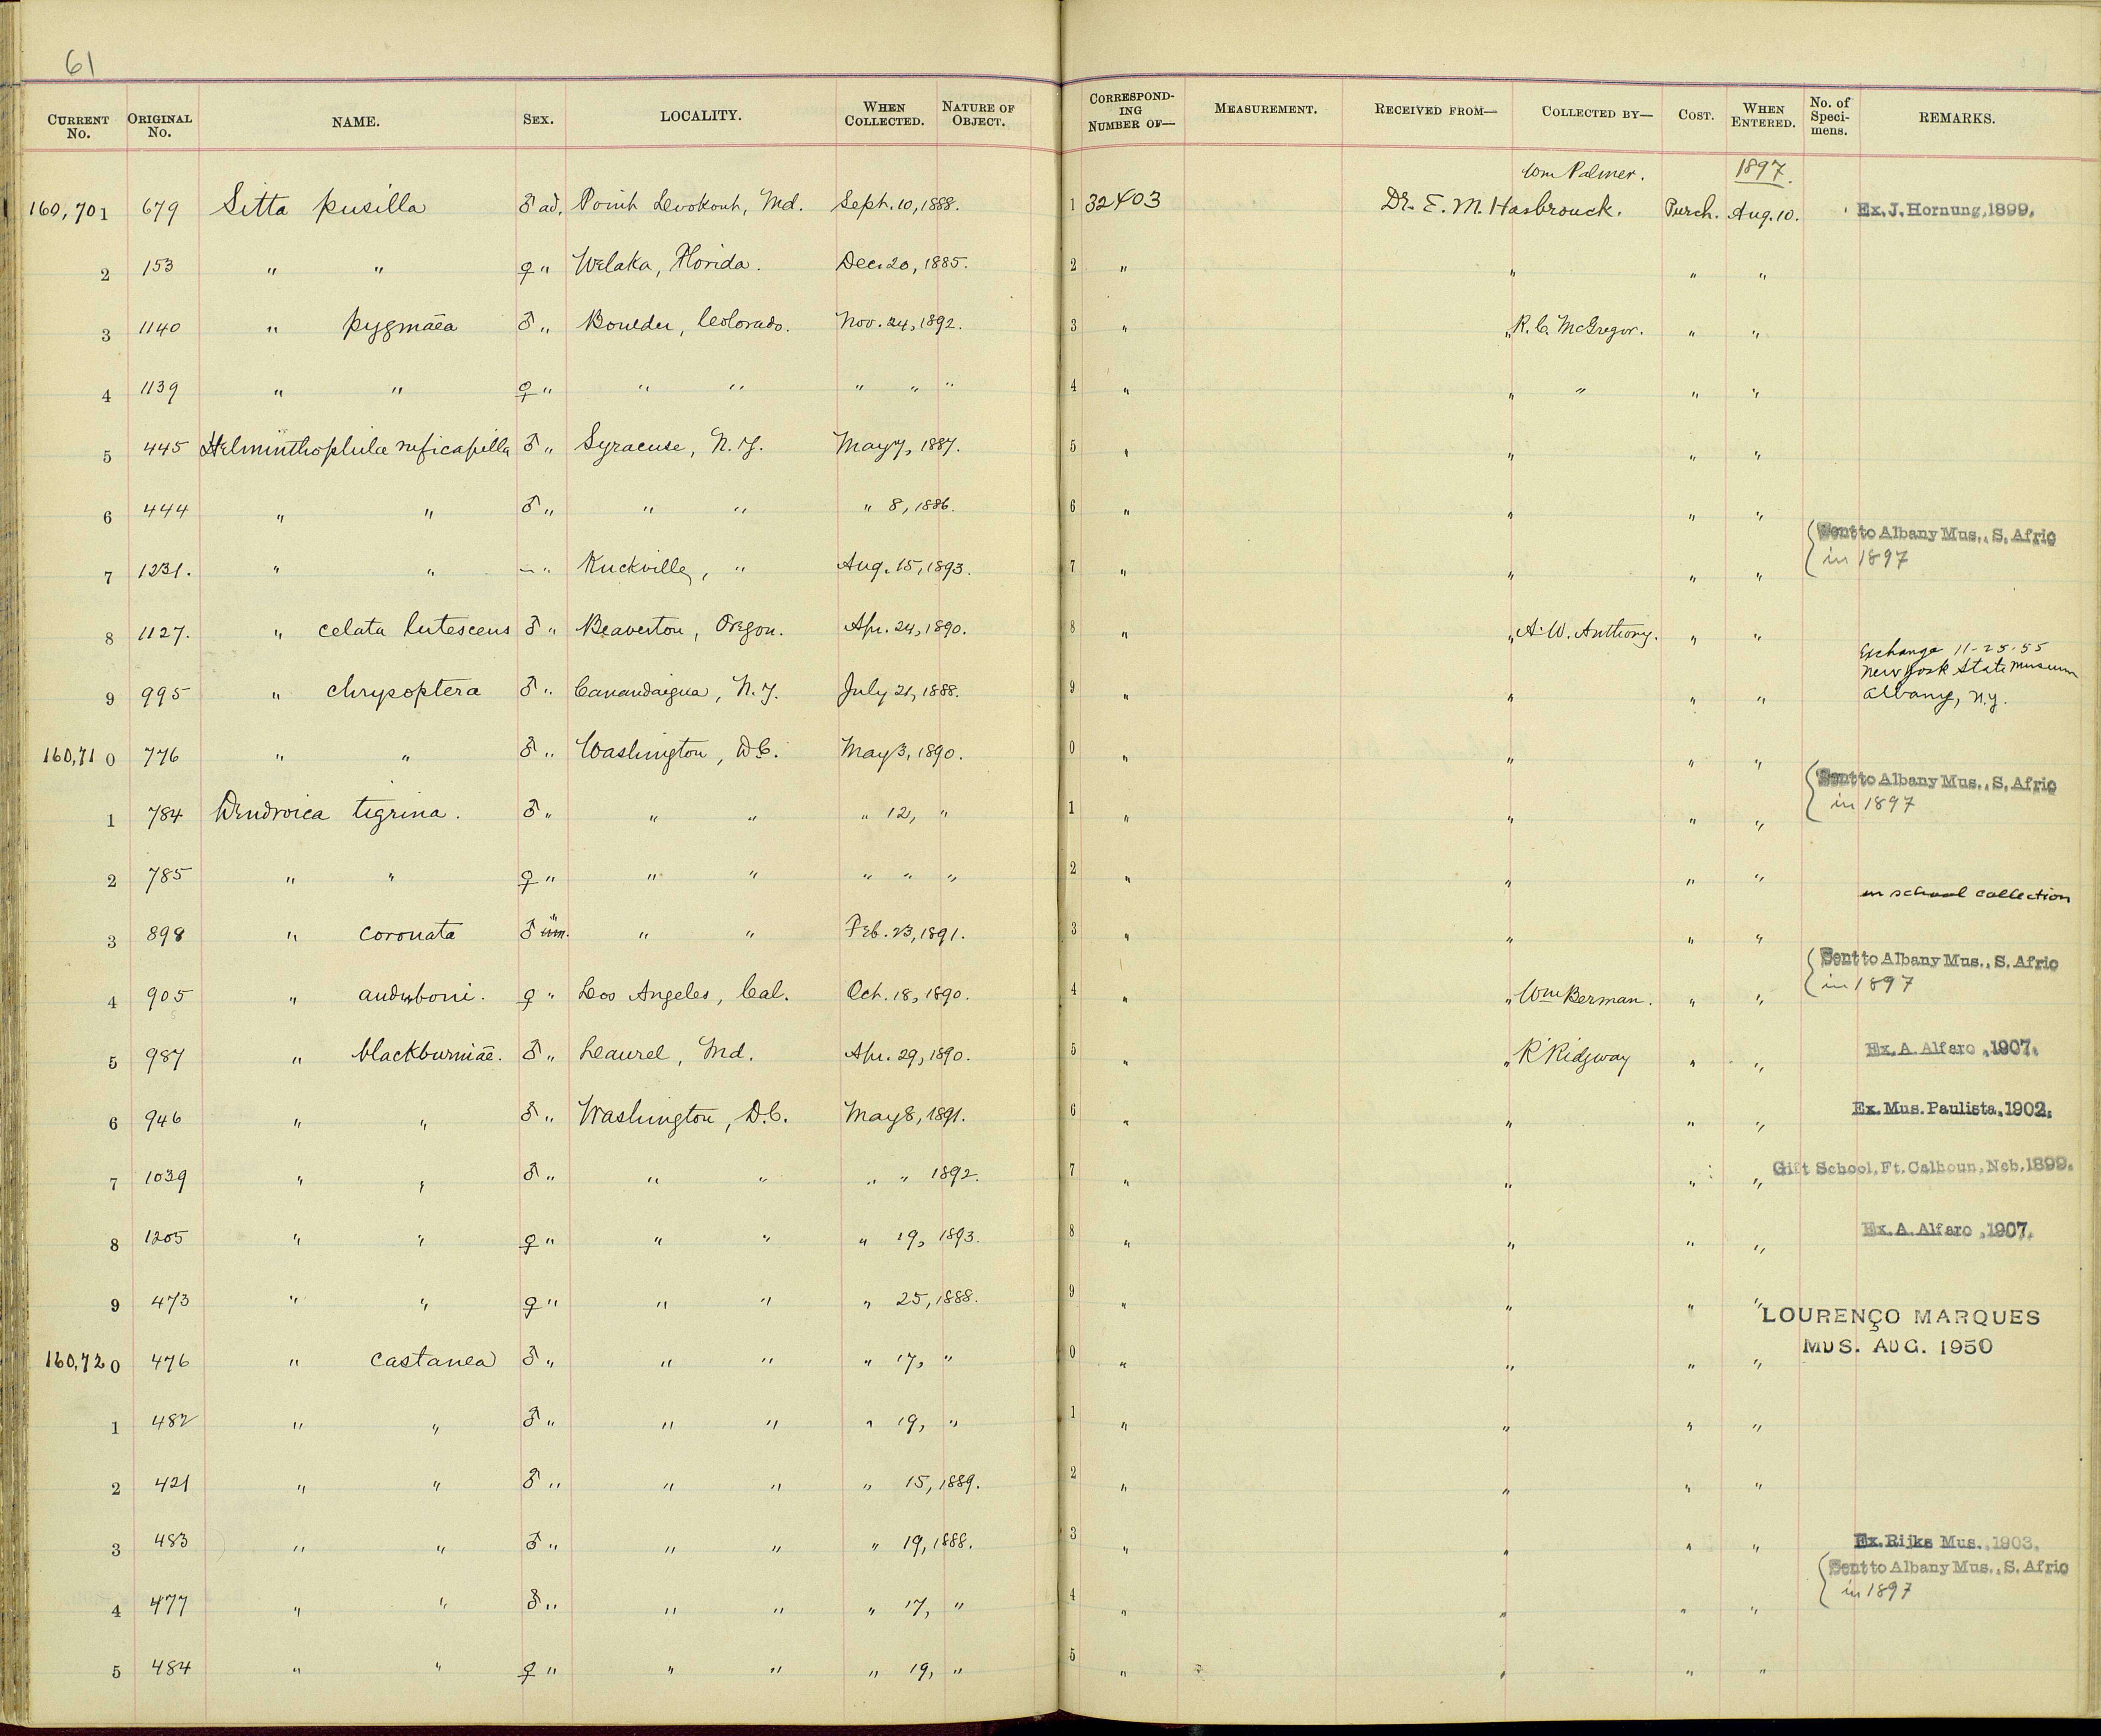 61
CURRENT No. ORIGINAL No. NAME. SEX. LOCALITY. WHEN COLLECTED. NATURE OF OBJECT. CORRESPONDING NUMBER OF— MEASUREMENT. RECEIVED FROM— COLLECTED BY— COST. WHEN ENTERED. No. of Specimens. REMARKS.
Wm Palmer. 1897.
160,701 679 Sitta pusilla ♂ ad. Point Lookout, Md. Sept. 10, 1888. 1 32403 Dr. E. M. Hasbrouck. Purch. Aug. 10. Ex. J. Hornung, 1899.
2 153 " " ♀ " Welaka, Florida. Dec. 20, 1885. 2 " " " "
3 1140 " pygmaea ♂ " Boulder, Colorado. Nov. 24, 1892. 3 " " R. C. McGregor. " "
4 1139 " " ♀ " " " " " " 4 " " " " "
5 445 Helminthophila ruficapilla ♂ " Syracuse, N.Y. May 7, 1887. 5 " " " "
6 444 " " ♂ " " " " 8, 1886. 6 " " " "
Sent to Albany Mus., S. Afric
in 1897
7 1231. " " – " Kuckville, " Aug. 15, 1893. 7 " " " "
8 1127. " celata lutescens ♂ " Beaverton, Oregon. Apr. 24, 1890. 8 " " A. W. Anthony. " "
Exchange 11-25-55
New York State Museum
9 995 " chrysoptera ♂ " Canandaigua, N.Y. July 21, 1888. 9 " " " " Albany, N.Y.
160,710 776 " " ♂ " Washington, D.C. May 3, 1890. 0 " " " "
Sent to Albany Mus., S. Afric
in 1897
1 784 Dendroica tigrina. ♂ " " " " 12, " 1 " " " "
2 785 " " ♀ " " " " " " 2 " " " "
in school collection
3 898 " coronata ♂ im. " " Feb. 23, 1891. 3 " " " "
Sent to Albany Mus., S. Afric
in 1897
4 905 " auduboni. ♀ " Los Angeles, Cal. Oct. 18, 1890. 4 " " Wm Berman. " "
5 987 " blackburniae. ♂ " Laurel, Md. Apr. 29, 1890. 5 " " R Ridgway " " Ex. A. Alfaro, 1907.
6 946 " " ♂ " Washington, D.C. May 8, 1891. 6 " " " " Ex. Mus. Paulista, 1902.
7 1039 " " ♂ " " " " " 1892. 7 " " " " Gift School, Ft. Calhoun, Neb. 1899.
8 1205 " " ♀ " " " " 19, 1893. 8 " " " " Ex. A. Alfaro, 1907.
9 473 " " ♀ " " " " 25, 1888. 9 " " " "
LOURENÇO MARQUES
MUS. AUG. 1950
160,720 476 " castanea ♂ " " " " 17, " 0 " " " "
1 482 " " ♂ " " " " 19, " 1 " " " "
2 421 " " ♂ " " " " 15, 1889. 2 " " " "
3 483 " " ♂ " " " " 19, 1888. 3 " " " " Ex. Rijks Mus., 1903.
Sent to Albany Mus., S. Afric
in 1897
4 477 " " ♂ " " " " 17, " 4 " " " "
5 484 " " ♀ " " " " 19, " 5 " " " "